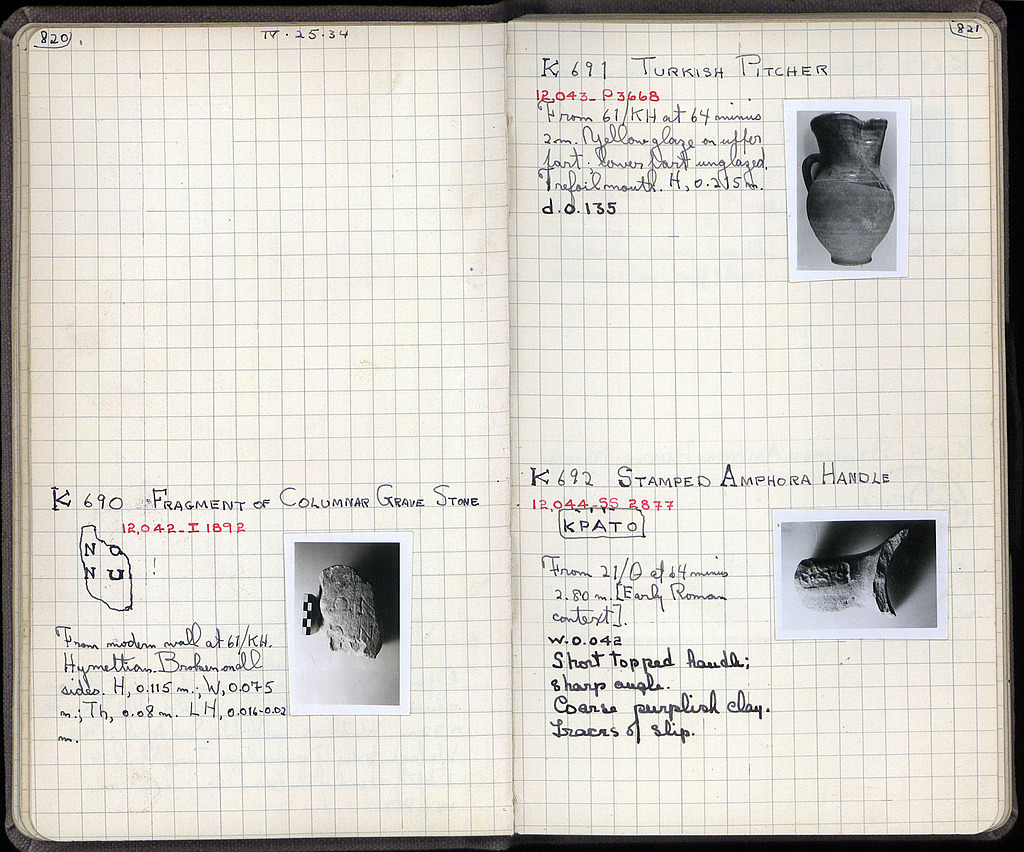 820
IV · 25 · 34
K 690 FRAGMENT OF COLUMNAR GRAVE STONE
12,042 - I 1892
N O
N U !
From modern wall at 61/KH.
Hymettian. Broken on all
sides. H, 0.115 m.; W, 0.075
m.; Th, 0.08 m. LH, 0.016-0.02
m.
821
K 691 TURKISH PITCHER
12,043 - P 3668
From 61/KH at 64 minus
2 m. Yellow glaze on upper
part. Lower part unglazed.
Trefoil mouth. H, 0.215 m.
d. 0.135
K 692 STAMPED AMPHORA HANDLE
12,044 - SS 2877
ΚΡΑΤΟ
From 21/Θ at 64 minus
2.80 m. [Early Roman
context].
W. 0.042
Short topped handle;
sharp angle.
Coarse purplish clay.
Traces of slip.